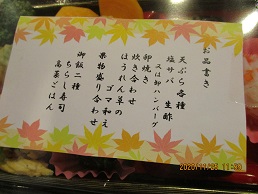 お品書き
天ぷら各種
塩サバ 生酢
又は卸ハンバーグ
卵焼き
炊き合わせ
ほうれん草の
ゴマ和え
果物盛り合わせ
御飯二種
ちらし寿司
高菜ごはん